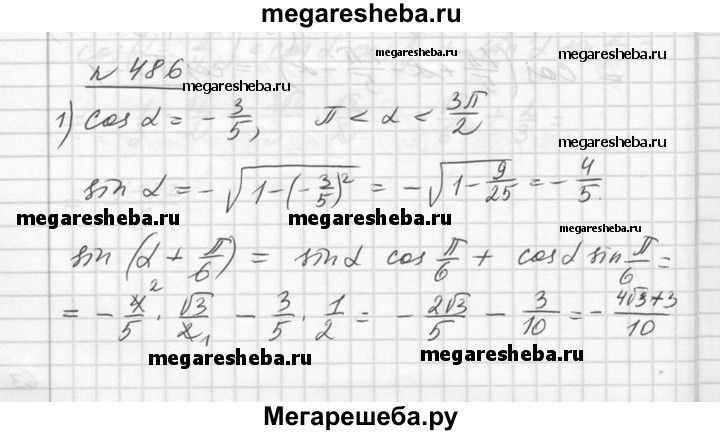 megaresheba.ru
№ 486
megaresheba.ru megaresheba.ru megaresheba.ru
1) cos α = - 3/5, π < α < 3π/2
sin α = - √(1 - (- 3/5)²) = - √(1 - 9/25) = - 4/5.
megaresheba.ru megaresheba.ru megaresheba.ru
sin (α + π/6) = sin α cos π/6 + cos α sin π/6 =
= - 4/5 · √3/2 - 3/5 · 1/2 = - 2√3/5 - 3/10 = - (4√3+3)/10
megaresheba.ru megaresheba.ru
Мегарешеба.ру